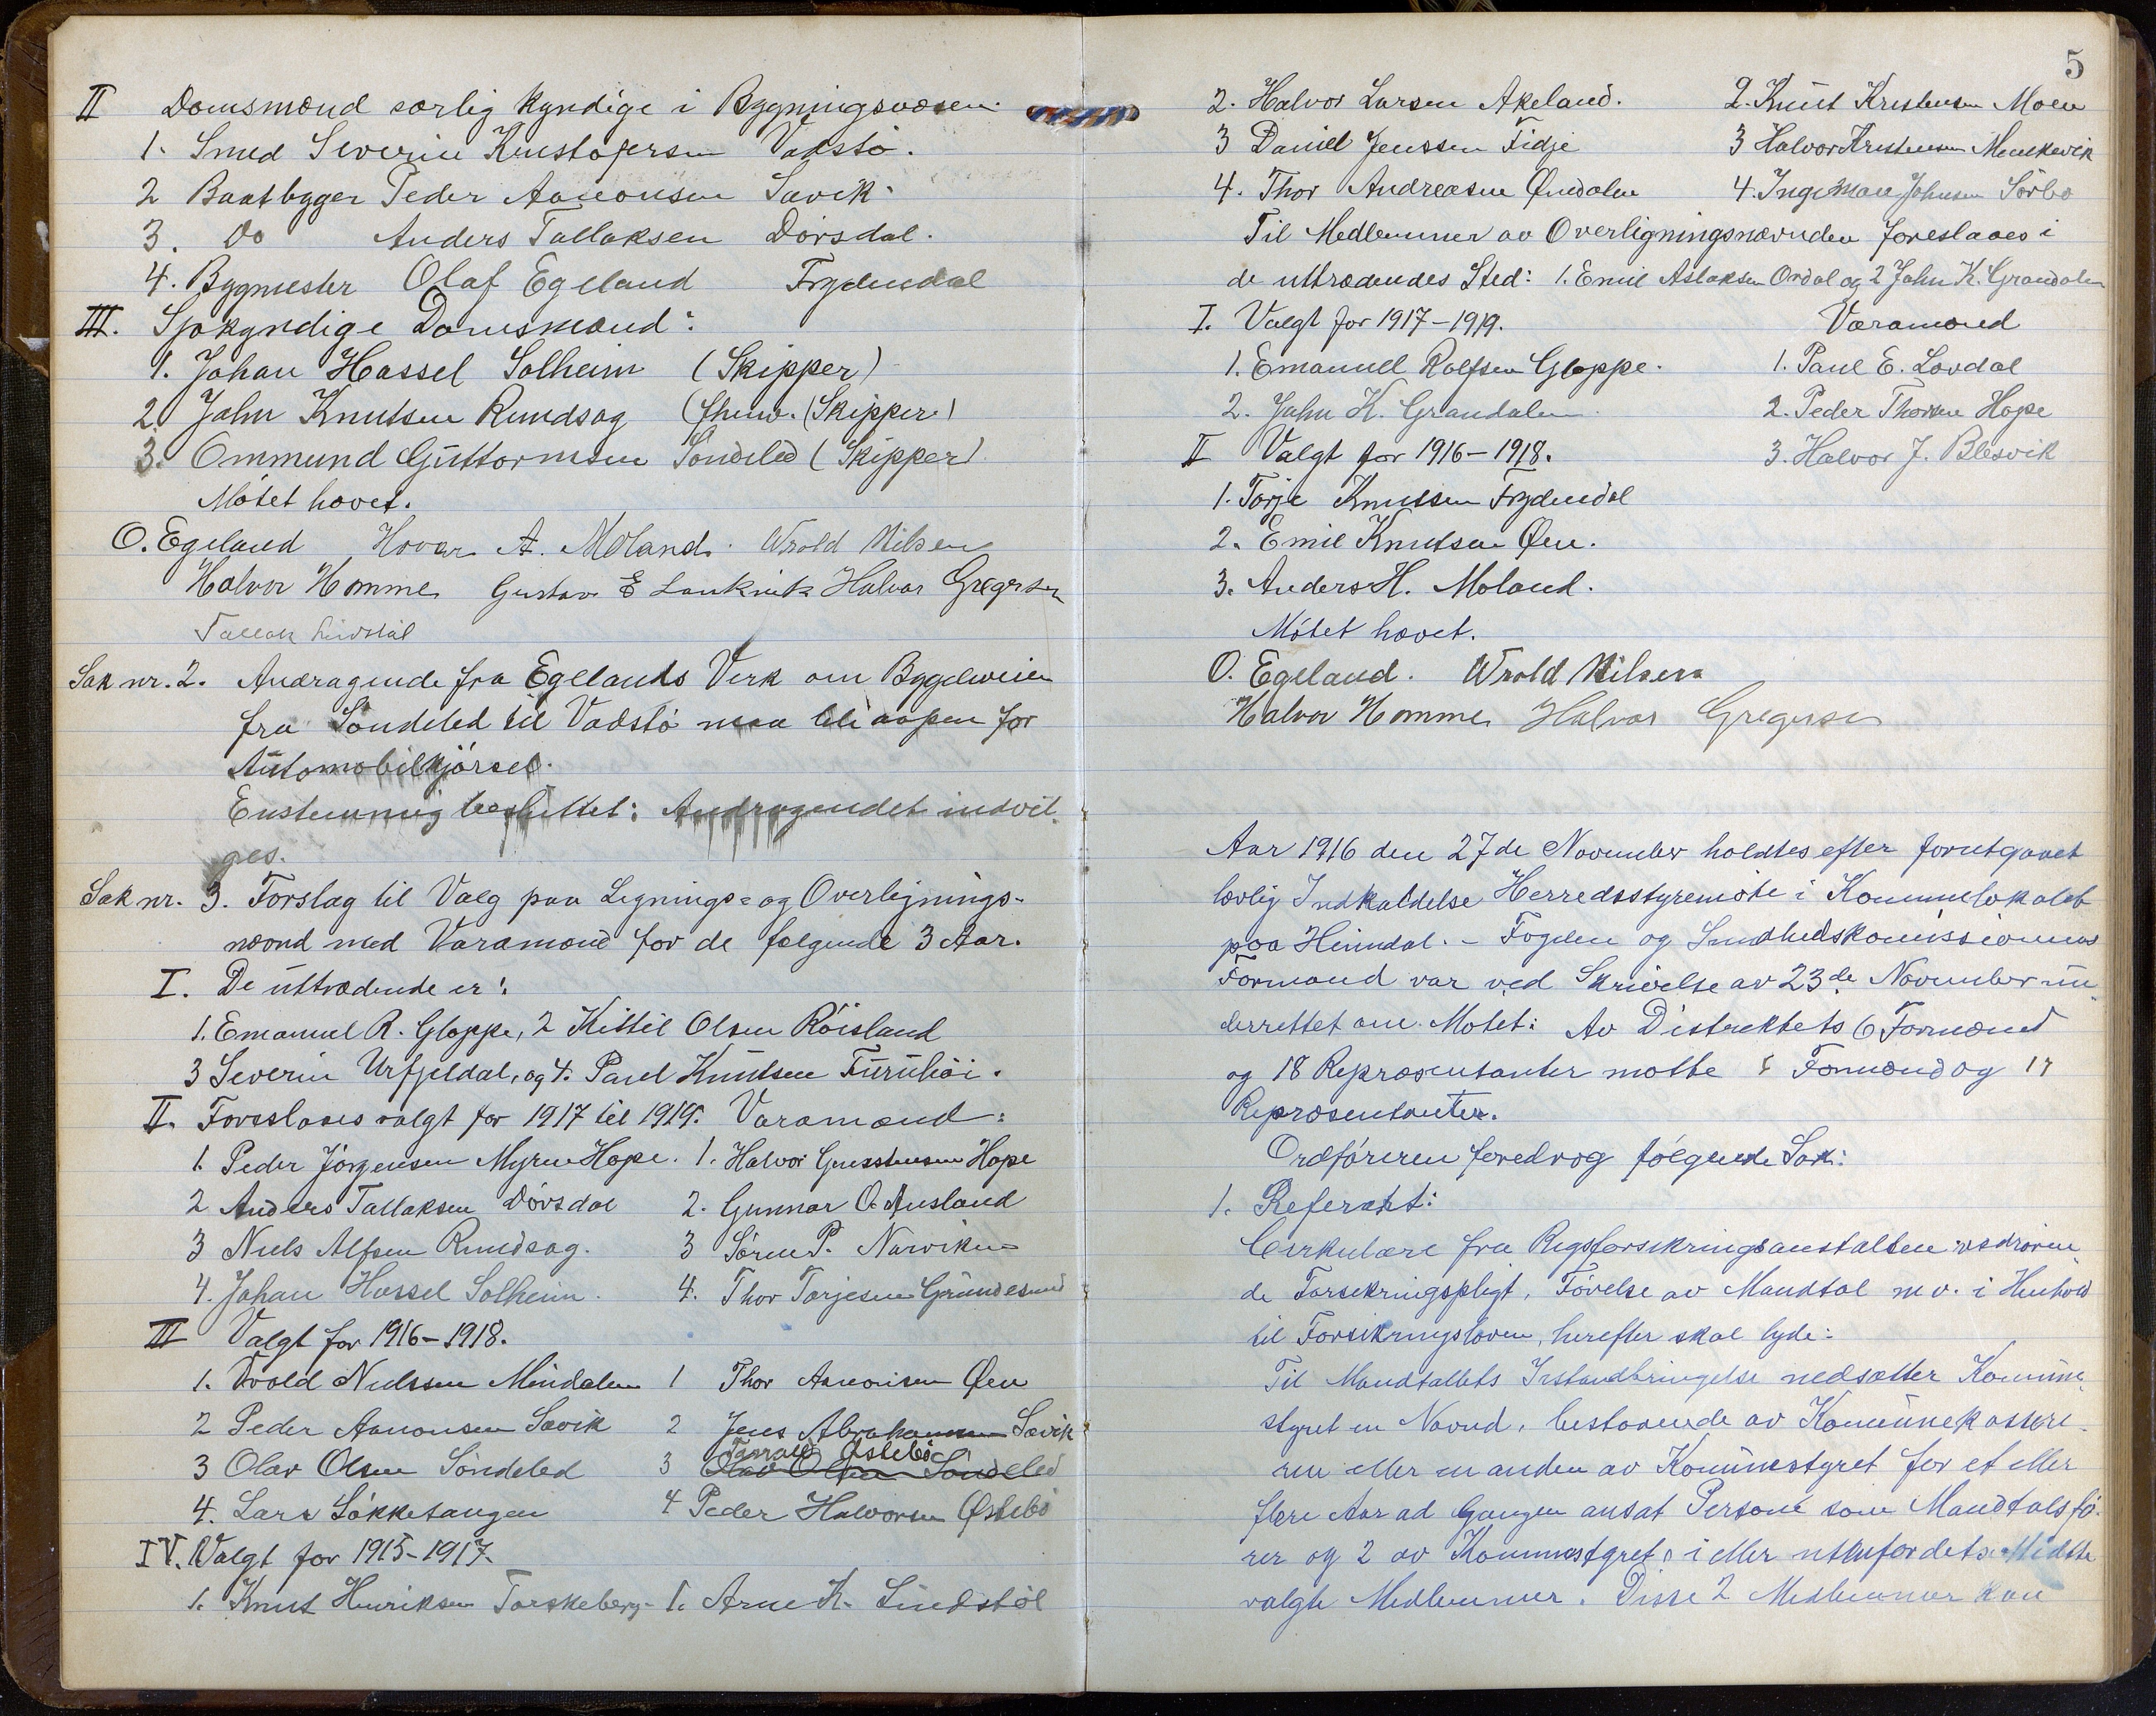 II Domsmænd særlig kyndige i Bygningsvæsen.
1. Smed Severin Kristofersen Vadstö.
2 Baatbygger Peder Aanonsen Savik.
3. do Anders Tallaksen Dørsdal.
4. Bygmester Olaf Egeland Frydendal
III. Sjøkyndige Domsmænd:
1. Johan Hassel Solheim (Skipper)
2. John Knutsen Rundsag (fhenv. (Skipper)
3. Ommund Guttormsen Söndeled (Skipper)
Mötet hævet.
O. Egeland Hovar A. Moland. Wrold Nilsen
Halvor Homme Gustav E Halvor Gregersen
Tallak Lindstöl
Sak nr. 2. Andragende fra Egelands Verk om Bygdeveien
fra Söndeled til Vadstö maa bli aapen for
Automobilkjörsel.
Enstemmig besluttet: Andragendet indvil-
ges.
Sak nr. 3. Forslag til Valg paa Lignings- og Overlignings-
nævnd med Varamænd for de følgende 3 Aar.
I. De uttrædende er:
1. Emanuel R. Gloppe, 2 Kittil Olsen Röisland
3 Severin Urfjeldal, og 4. Paul Knutsen Furuhöi.
II. Foreslaaes valgt for 1917 til 1919. Varamænd:
1. Peder Jörgensen Myren Hope. 1. Halvor Hope
2 Anders Tallaksen Dörsdal 2. Gunnar O. Ausland
3 Niels Alfsen Rundsag. 3 Sören P. Narviken
4. Johan Hassel Solheim. 4. Thor Torjesen Grundesund
III Valgt for 1916-1918.
1. Vrold Nielssen Mindalen 1 Thor Aanonsen Øen
2 Peder Aanonsen Savik 2 Jens Abrahamsen Savik
Tarald Østebö
3 Olav Olsen Söndeled 3 Olav Olsen Söndeled
4. Lars Lökketangen 4 Peder Halvorsen Østebö
IV. Valgt for 1915-1917.
1. Knut Henriksen Torskeberg. 1. Arne K. Lindstöl
5
2. Halvor Larsen Akeland. 2. Knut Kristensen Moen
3 Daniel Jenssen Fidje 3 Halvor Kristensen
4. Thor Andreasen Øendalen 4. Ingeman Johnsen Sörbö
Til Medlemmer av Overligningsnævnden foreslaaes i
de uttrædendes Sted: 1. Emil Aslaksen Ordal og 2 John K. Grandalen
I. Valgt for 1917-1919. Varamænd
1. Emanuel Rolfsen Gloppe. 1. Paul E. Lovdal
2. John K. Grandalen. 2. Peder Thorsen Hope
II Valgt for 1916-1918. 3. Halvor J. Blesvik
1. Torje Knutsen Frydendal
2. Emil Knutsen Øen.
3. Anders H. Moland.
Mötet hævet.
O. Egeland. Wrold Nilsen
Halvor Homme Halvor Gregersen
Aar 1916 den 27de November holdtes efter forutgaaet
lovlig Indkaldelse Herredsstyremöte i Kommunelokalet
paa Heimdal. - Fogden og Sundhedskomissionens
Formand var ved Skrivelse av 23de November un-
derrettet om Mötet: Av Distriktets 6 Formænd
og 18 Repræsentanter mötte Formænd og 17
Repræsentanter.
Ordföreren foredrog fölgende Sak:
1. Referat:
Cirkulære fra Rigsforsikringsanstalten vedrören-
de Forsikringspligt, Förelse av Mandtal m v. i Henhold
til Forsikringsloven, herefter skal lyde:
Til Mandtallets Istandbringelse nedsætter Kommune-
styret en Nævnd, bestaaende av Kommunekassere-
ren eller en anden av Komunestyret for et eller
flere Aar ad Gangen ansat Person som Mandtalsfö-
rer og 2 av Kommunestyret i eller utenfor dets Midte
valgte Medlemmer. Disse 2 Medlemmer kan